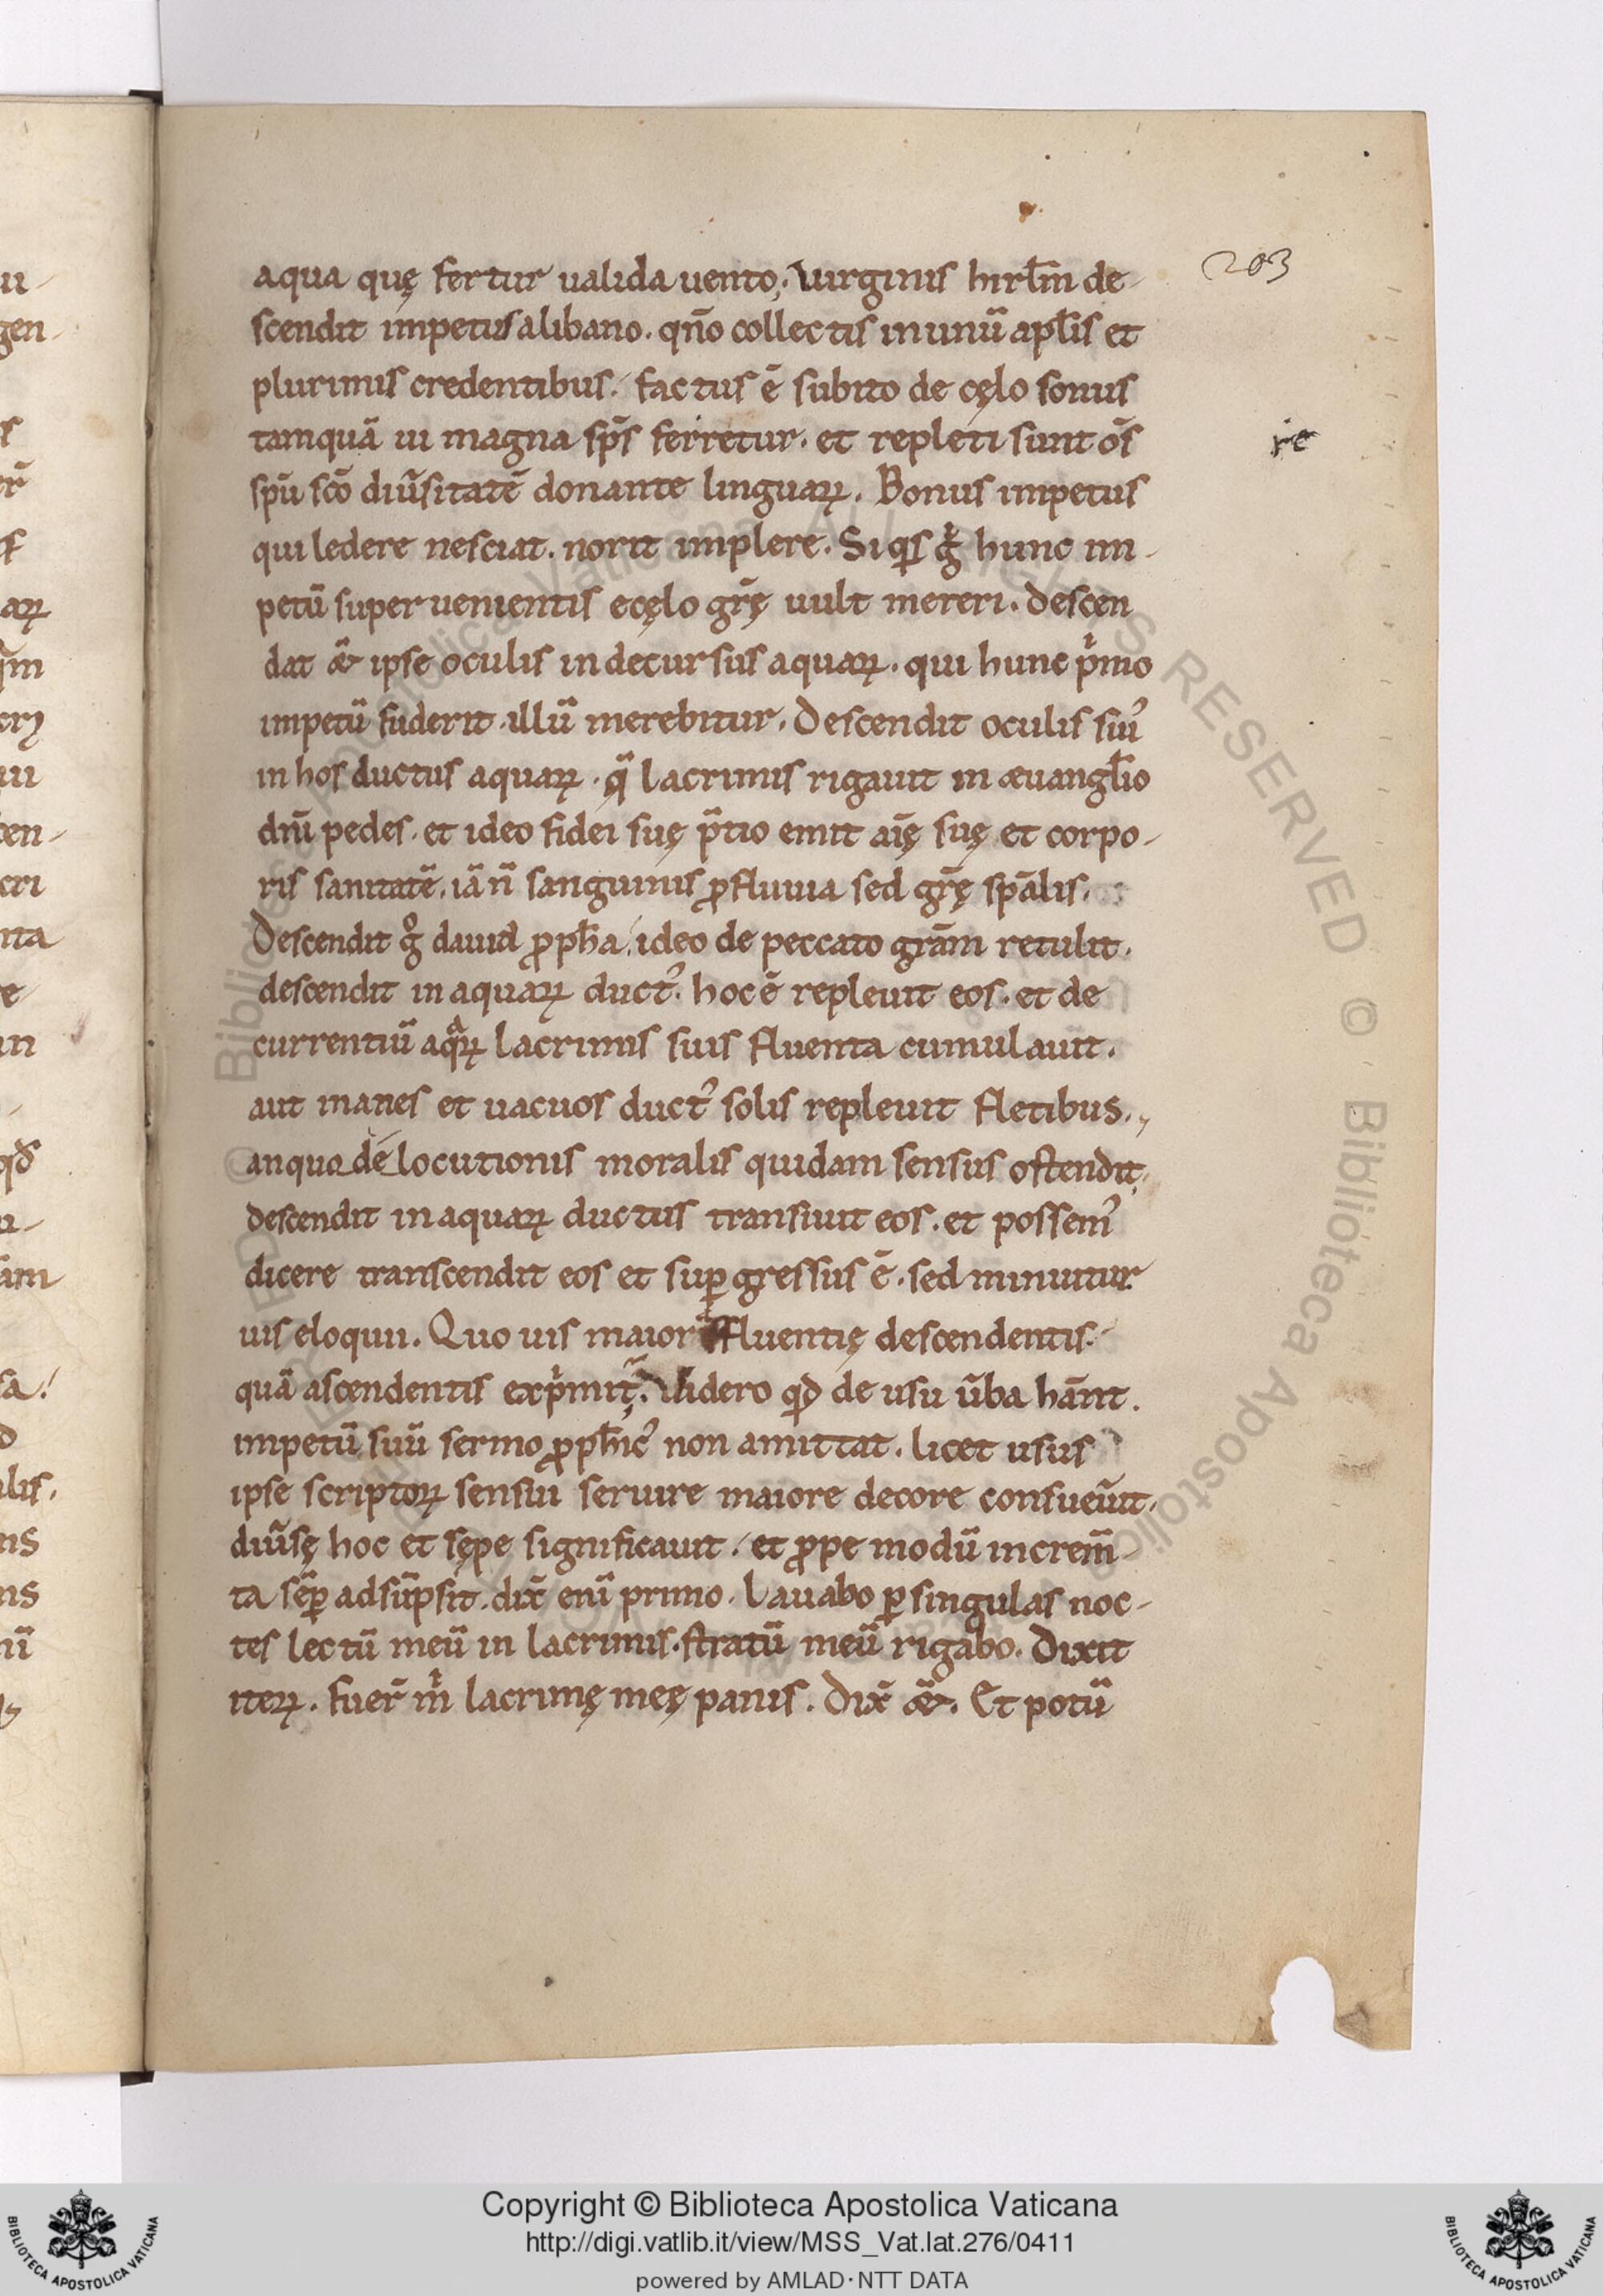 203
aqua quę fertur ualida uento; Uirginis hirl̄m de-
scendit impetus a libano. qn̄o collectis in unū apl̄is et
plurimis credentibus. factus ē subito de cęlo sonus
tamquā ui magna sp̄s ferretur. et repleti sunt om̄s
re
sp̄u sc̄o diūsitatē donante linguaꝝ. Bonus impetus
qui ledere nesciat. norit implere. Si qͥs gͥ hunc im-
petū superuenientis e cęlo gr̄ę uult mereri. descen
dat &̄ ipse oculis in decursus aquaꝝ. qui hunc pͥmo
impetū fuderit. illū merebitur. Descendit oculis sui᾽
in hos ductus aquaꝝ. qͣ lacrimis rigauit in æuangl̄io
dn̄i pedes. et ideo fidei suę p̄tio emit aīę suę et corpo-
ris sanitatē. iā n̄ sanguinis ꝓfluuia sed gr̄ę sp̄alis.
Descendit gͦ dauid ꝓph̄a. ideo de peccato grām retulit.
descendit in aquaꝝ duct᾽. hoc ē repleuit eos. et de
currentiū aqͣꝝ lacrimis suis fluenta cumulauit.
aut inanes et uacuos duct᾽ solis repleuit fletibus.
an quo de locutionis moralis quidam sensus ostendit,
descendit in aquaꝝ ductus transiuit eos. et possem᾽
dicere transcendit eos et suꝑgressus ē. sed minuitur
uis eloquii. Quo uis maior fluentię descendentis.
quā ascendentis expͥmit᷑. Uidero qđ de usu ūba hānt.
impetū suū sermo ꝓph̄ic᾽ non amittat. licet usus
ipse scriptoꝝ sensui seruire maiore decore consueūit.
diūsę hoc et sępe significauit. et ꝓpe modū increm̄
ta sēꝑ adsūpsit. dix̄ enī primo. Lauabo ꝑ singulas noc-
tes lectū meū in lacrimis. stratū meū rigabo. Dixit
iteꝝ. fuer̄ mͥ lacrimę meę panis. Dix̄ &̄. Et potū
Copyright © Biblioteca Apostolica Vaticana
http://digi.vatlib.it/view/MSS_Vat.lat.276/0411
powered by AMLAD·NTT DATA
BIBLIOTECA APOSTOLICA VATICANA
BIBLIOTECA APOSTOLICA VATICANA